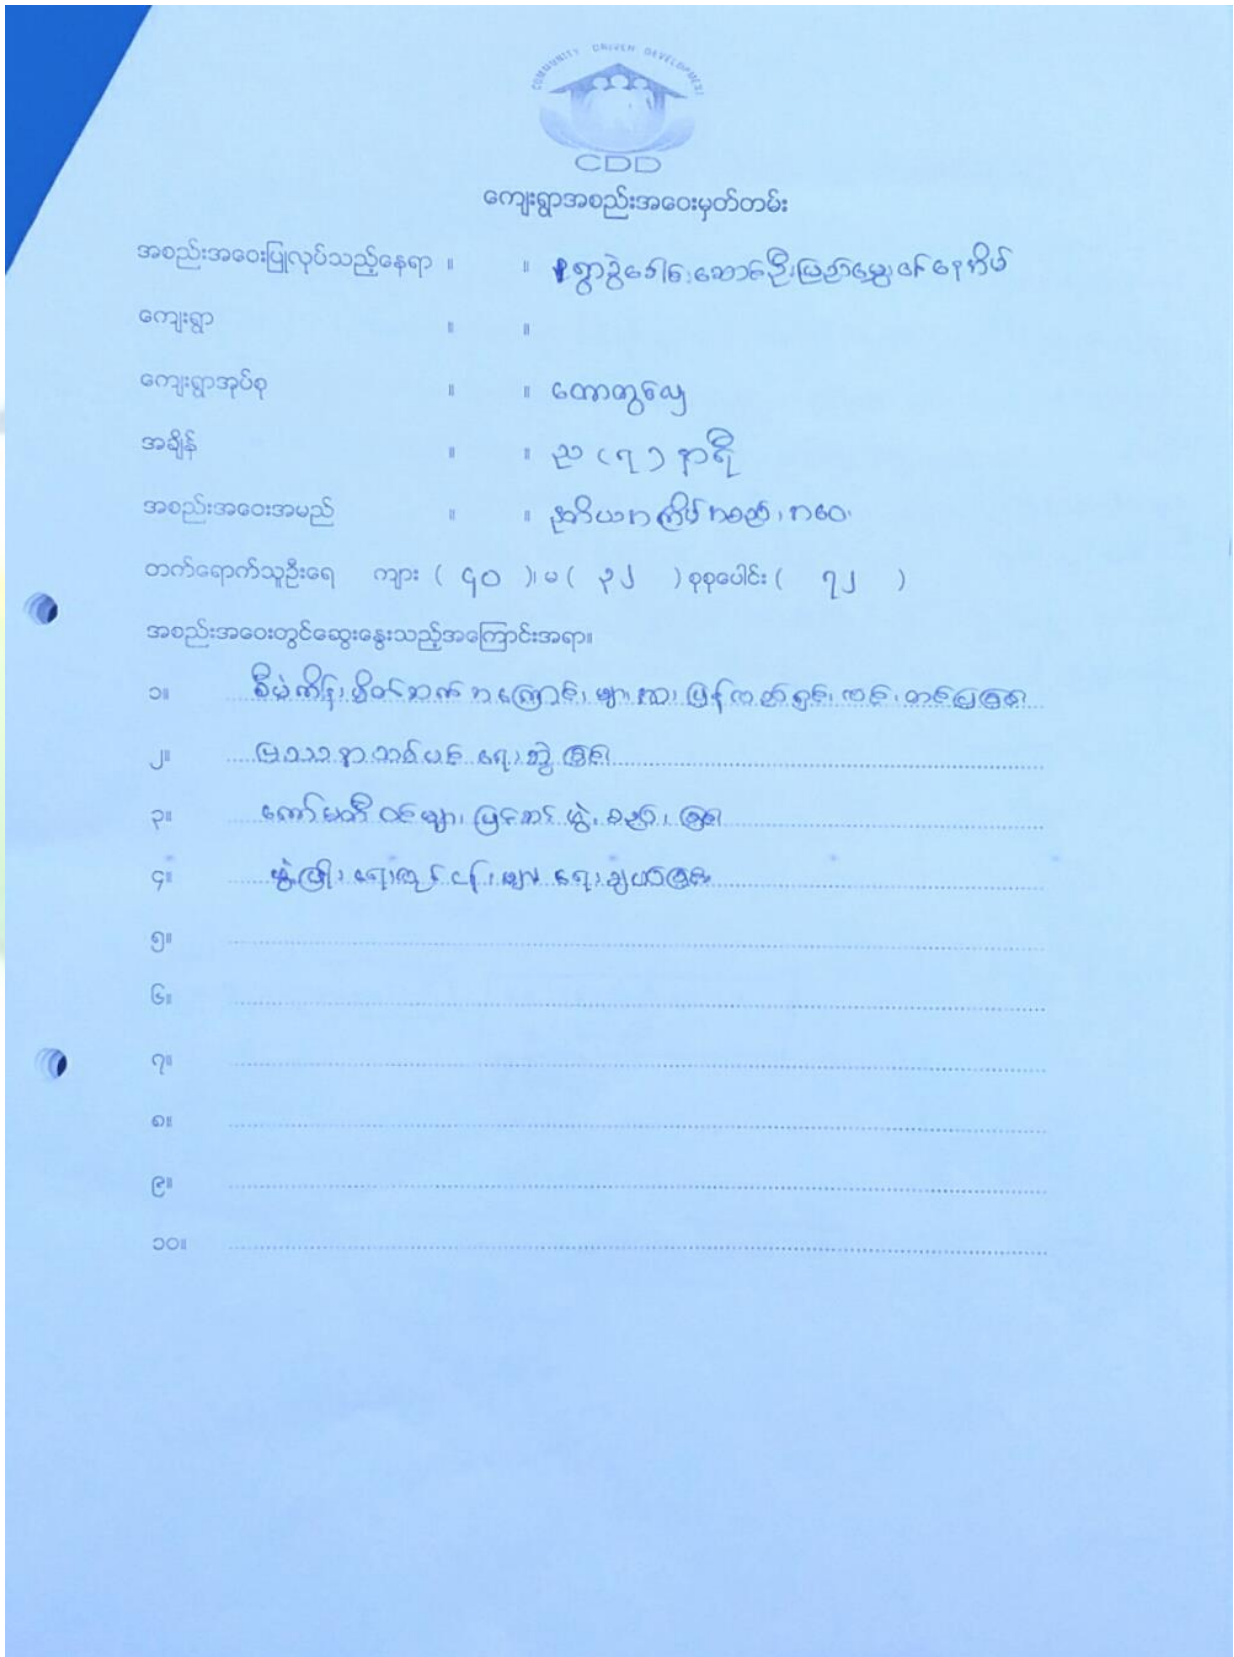 COMMUNITY DRIVEN DEVELOPMENT
CDD
ကျေးရွာအစည်းအဝေးမှတ်တမ်း
အစည်းအဝေးပြုလုပ်သည့်နေရာ ။ ။ ရွာခွဲခေါင်းဆောင်ဦးမြည်မွှေးဇင်နေအိမ်
ကျေးရွာ ။ ။
ကျေးရွာအုပ်စု ။ ။
အချိန် ။ ။ ည (၇) နာရီ
အစည်းအဝေးအမည် ။ ။ ဒုတိယအကြိမ်အစည်းအဝေး
တက်ရောက်သူဦးရေ ကျား ( ၄၀ )၊ မ ( ၃၂ ) စုစုပေါင်း ( ၇၂ )
အစည်းအဝေးတွင်ဆွေးနွေးသည့်အကြောင်းအရာ။
၁။ စီမံကိန်းမိတ်ဆက်အကြောင်းများအား ပြန်လည်ရှင်းလင်းတင်ပြခြင်း
၂။ ပြဿနာသစ်ပင်ရေးဆွဲခြင်း
၃။ ကော်မတီဝင်များပြင်ဆင်ဖွဲ့စည်းခြင်း
၄။ ဖွံ့ဖြိုးရေးလုပ်ငန်းများရွေးချယ်ခြင်း
၅။
၆။
၇။
၈။
၉။
၁၀။